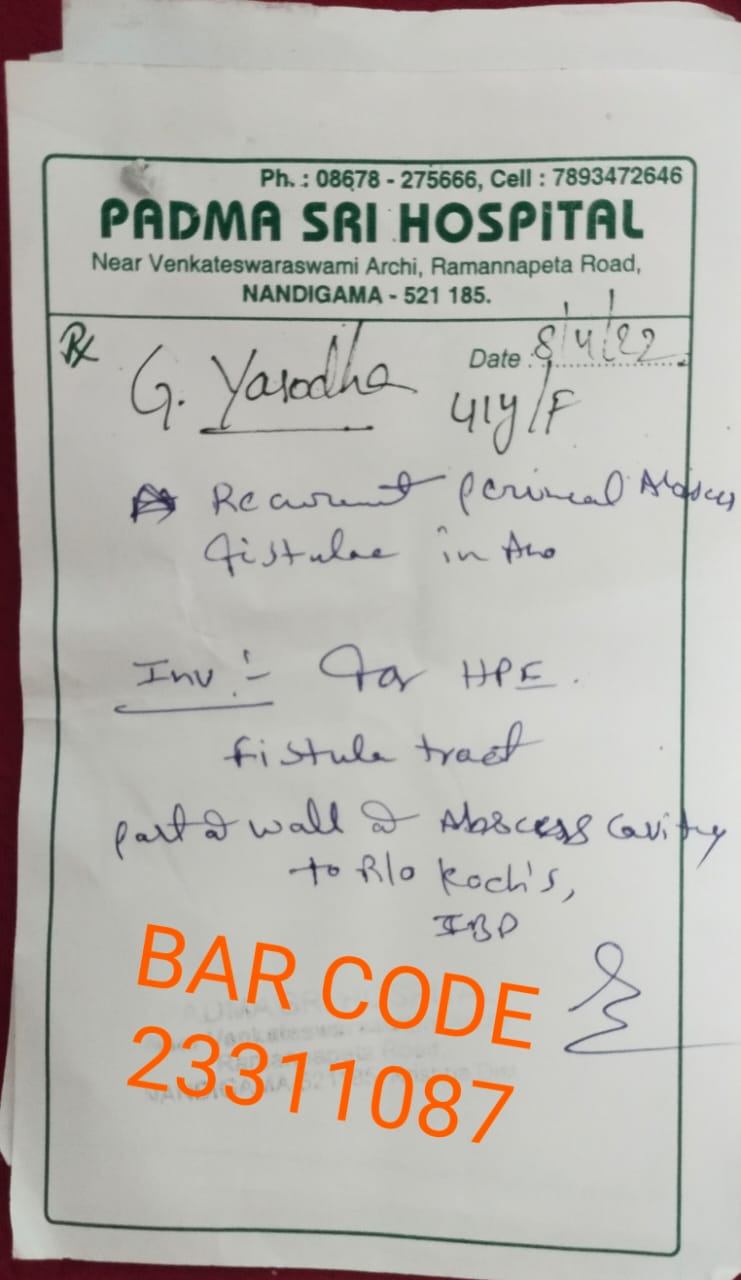 Ph. : 08678 - 275666, Cell : 7893472646
PADMA SRI HOSPITAL
Near Venkateswaraswami Archi, Ramannapeta Road,
NANDIGAMA - 521 185.
Rx
Date : 8/4/22
G. Yasodha
41y/F
Recurrent perineal Abscess
fistulae in Ano
Inv :- For HPE.
fistula tract
part of wall of Abscess Cavity
to R/o Koch's,
IBD
BAR CODE
23311087